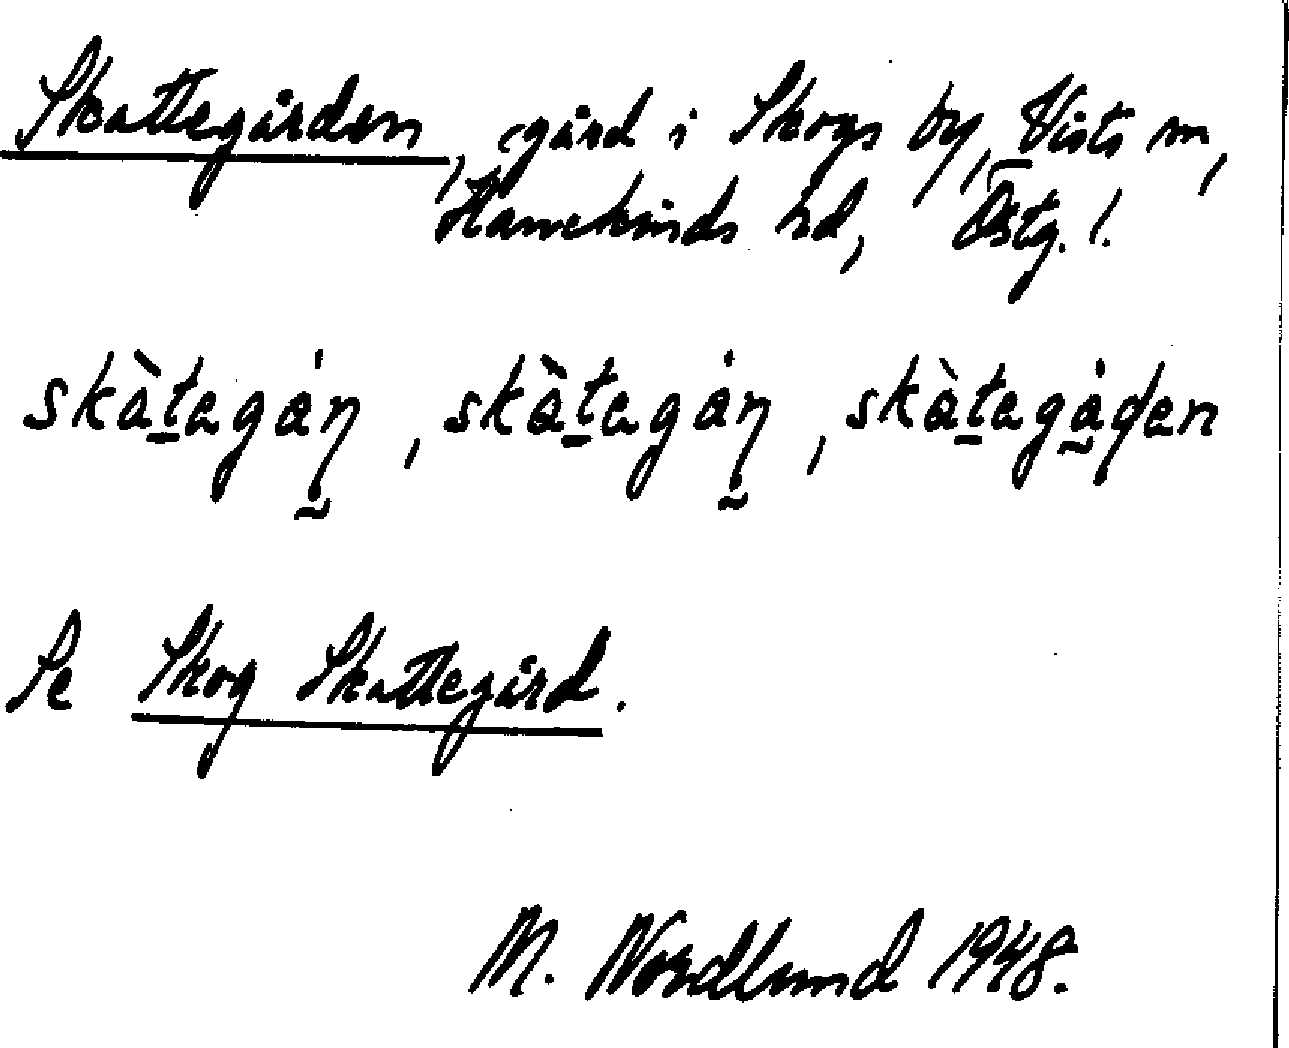 Skattegården, gård i Skogs by, Vists sn,
Hanekinds hd, Östg. l.
skàt̠egån̥, skàt̠egån̥, skàt̠egåden
Se Skog Skattegård.
M. Nordlund 1948.